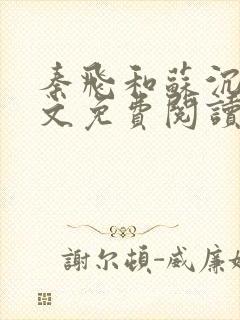 秦飛和蘇沉
文免費閱讀
謝尔頓-威廉